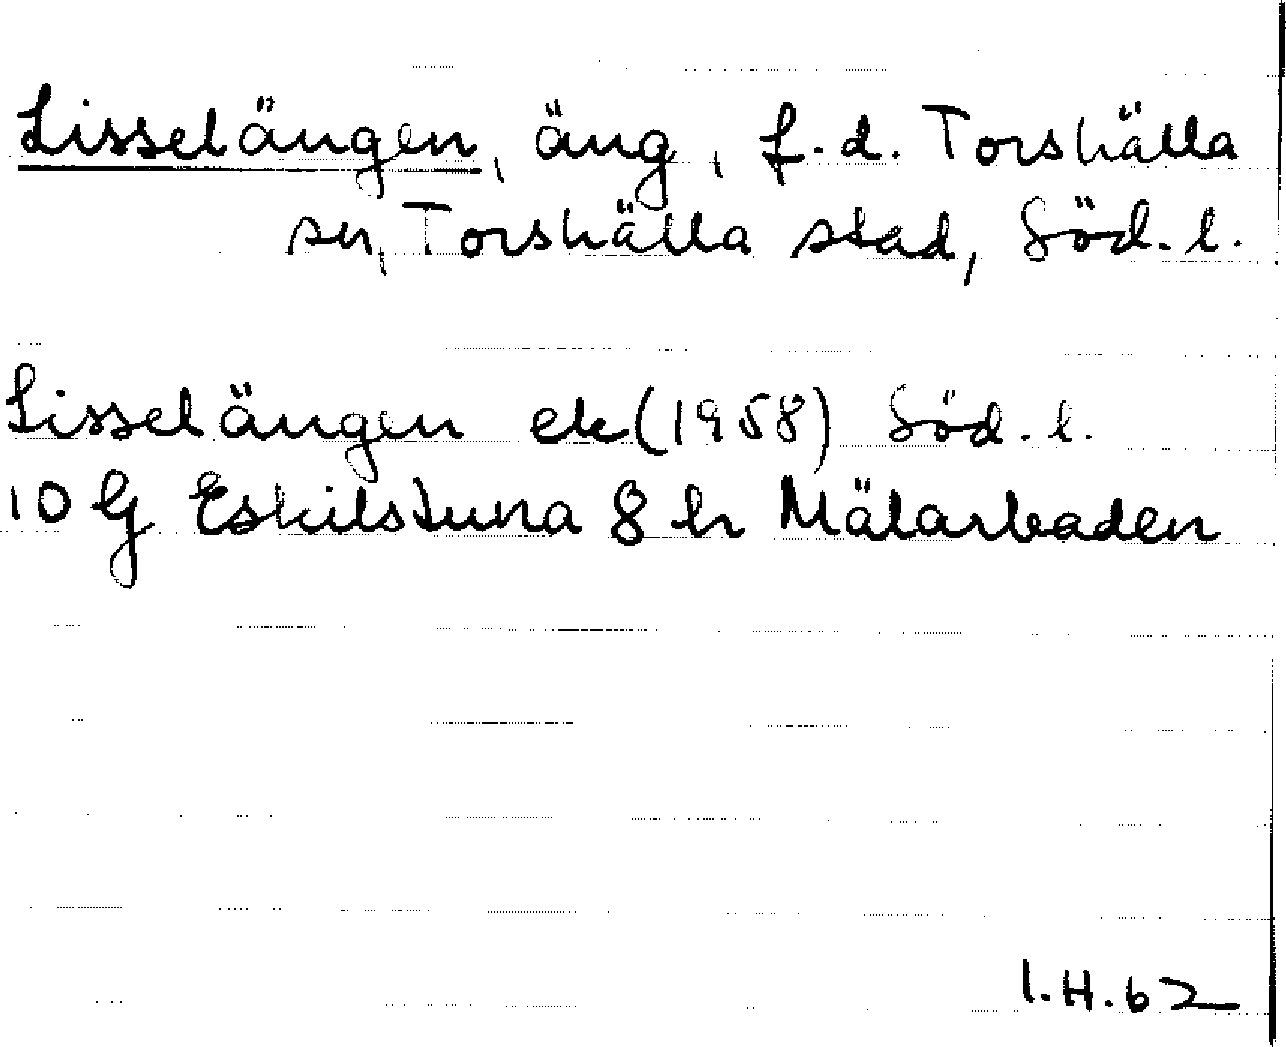 Lisselängen, äng, f.d. Torshälla
sn, Torshälla stad, Söd.l.
Lisselängen ek (1958) Söd.l.
10 G Eskilstuna 8 h Mälarbaden
I.H.62